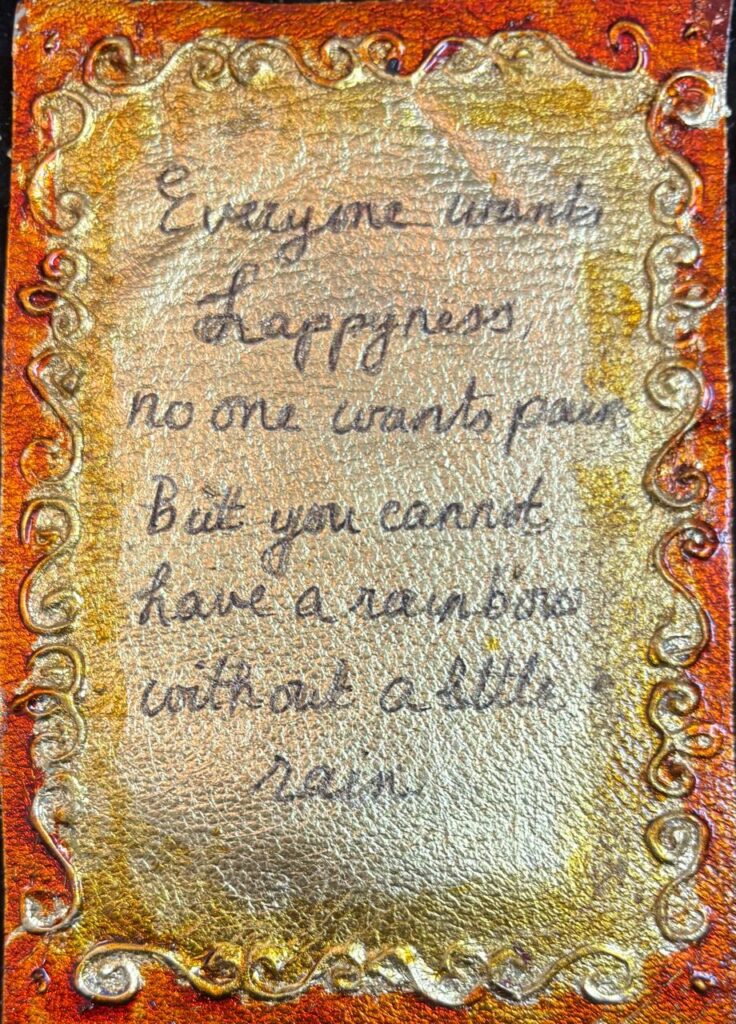 Everyone wants
happyness,
no one wants pain
But you cannot
have a rainbow
without a little
rain